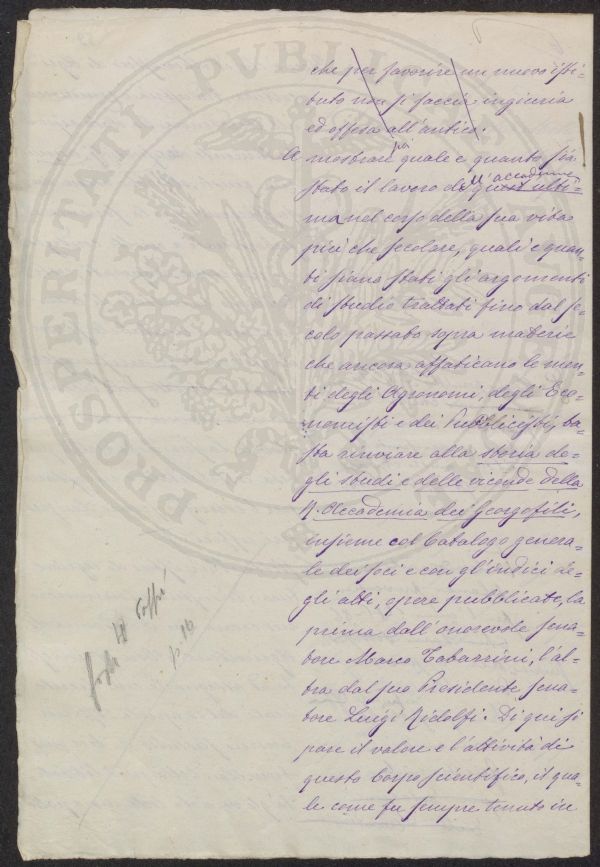 che per favorire un nuovo isti-
tuto non si faccia ingiuria
ed offesa all'antico.
A mostrare poi quale e quanto sia
stato il lavoro dell'accademia quest'ulti-
ma nel corso della sua vita
più che secolare, quali e quan-
ti siano stati gli argomenti
di studio trattati fino dal se-
colo passato sopra materie
che ancora affaticano le men-
ti degli Agronomi, degli Eco-
nomisti e dei Pubblicisti, ba-
sta rinviare alla storia de-
gli studi e delle vicende della
R. Accademia dei Georgofili,
insieme col Catalogo genera-
le dei soci e con gl'indici de-
gli atti, opere pubblicate, la
prima dall'onorevole sena-
tore Marco Tabarrini, l'al-
tra dal suo Presidente sena-
tore Luigi Ridolfi. Di qui si
pare il valore e l'attività di
questo Corpo scientifico, il qua-
le come fu sempre tenuto in
PROSPERITATI PVBLICAE